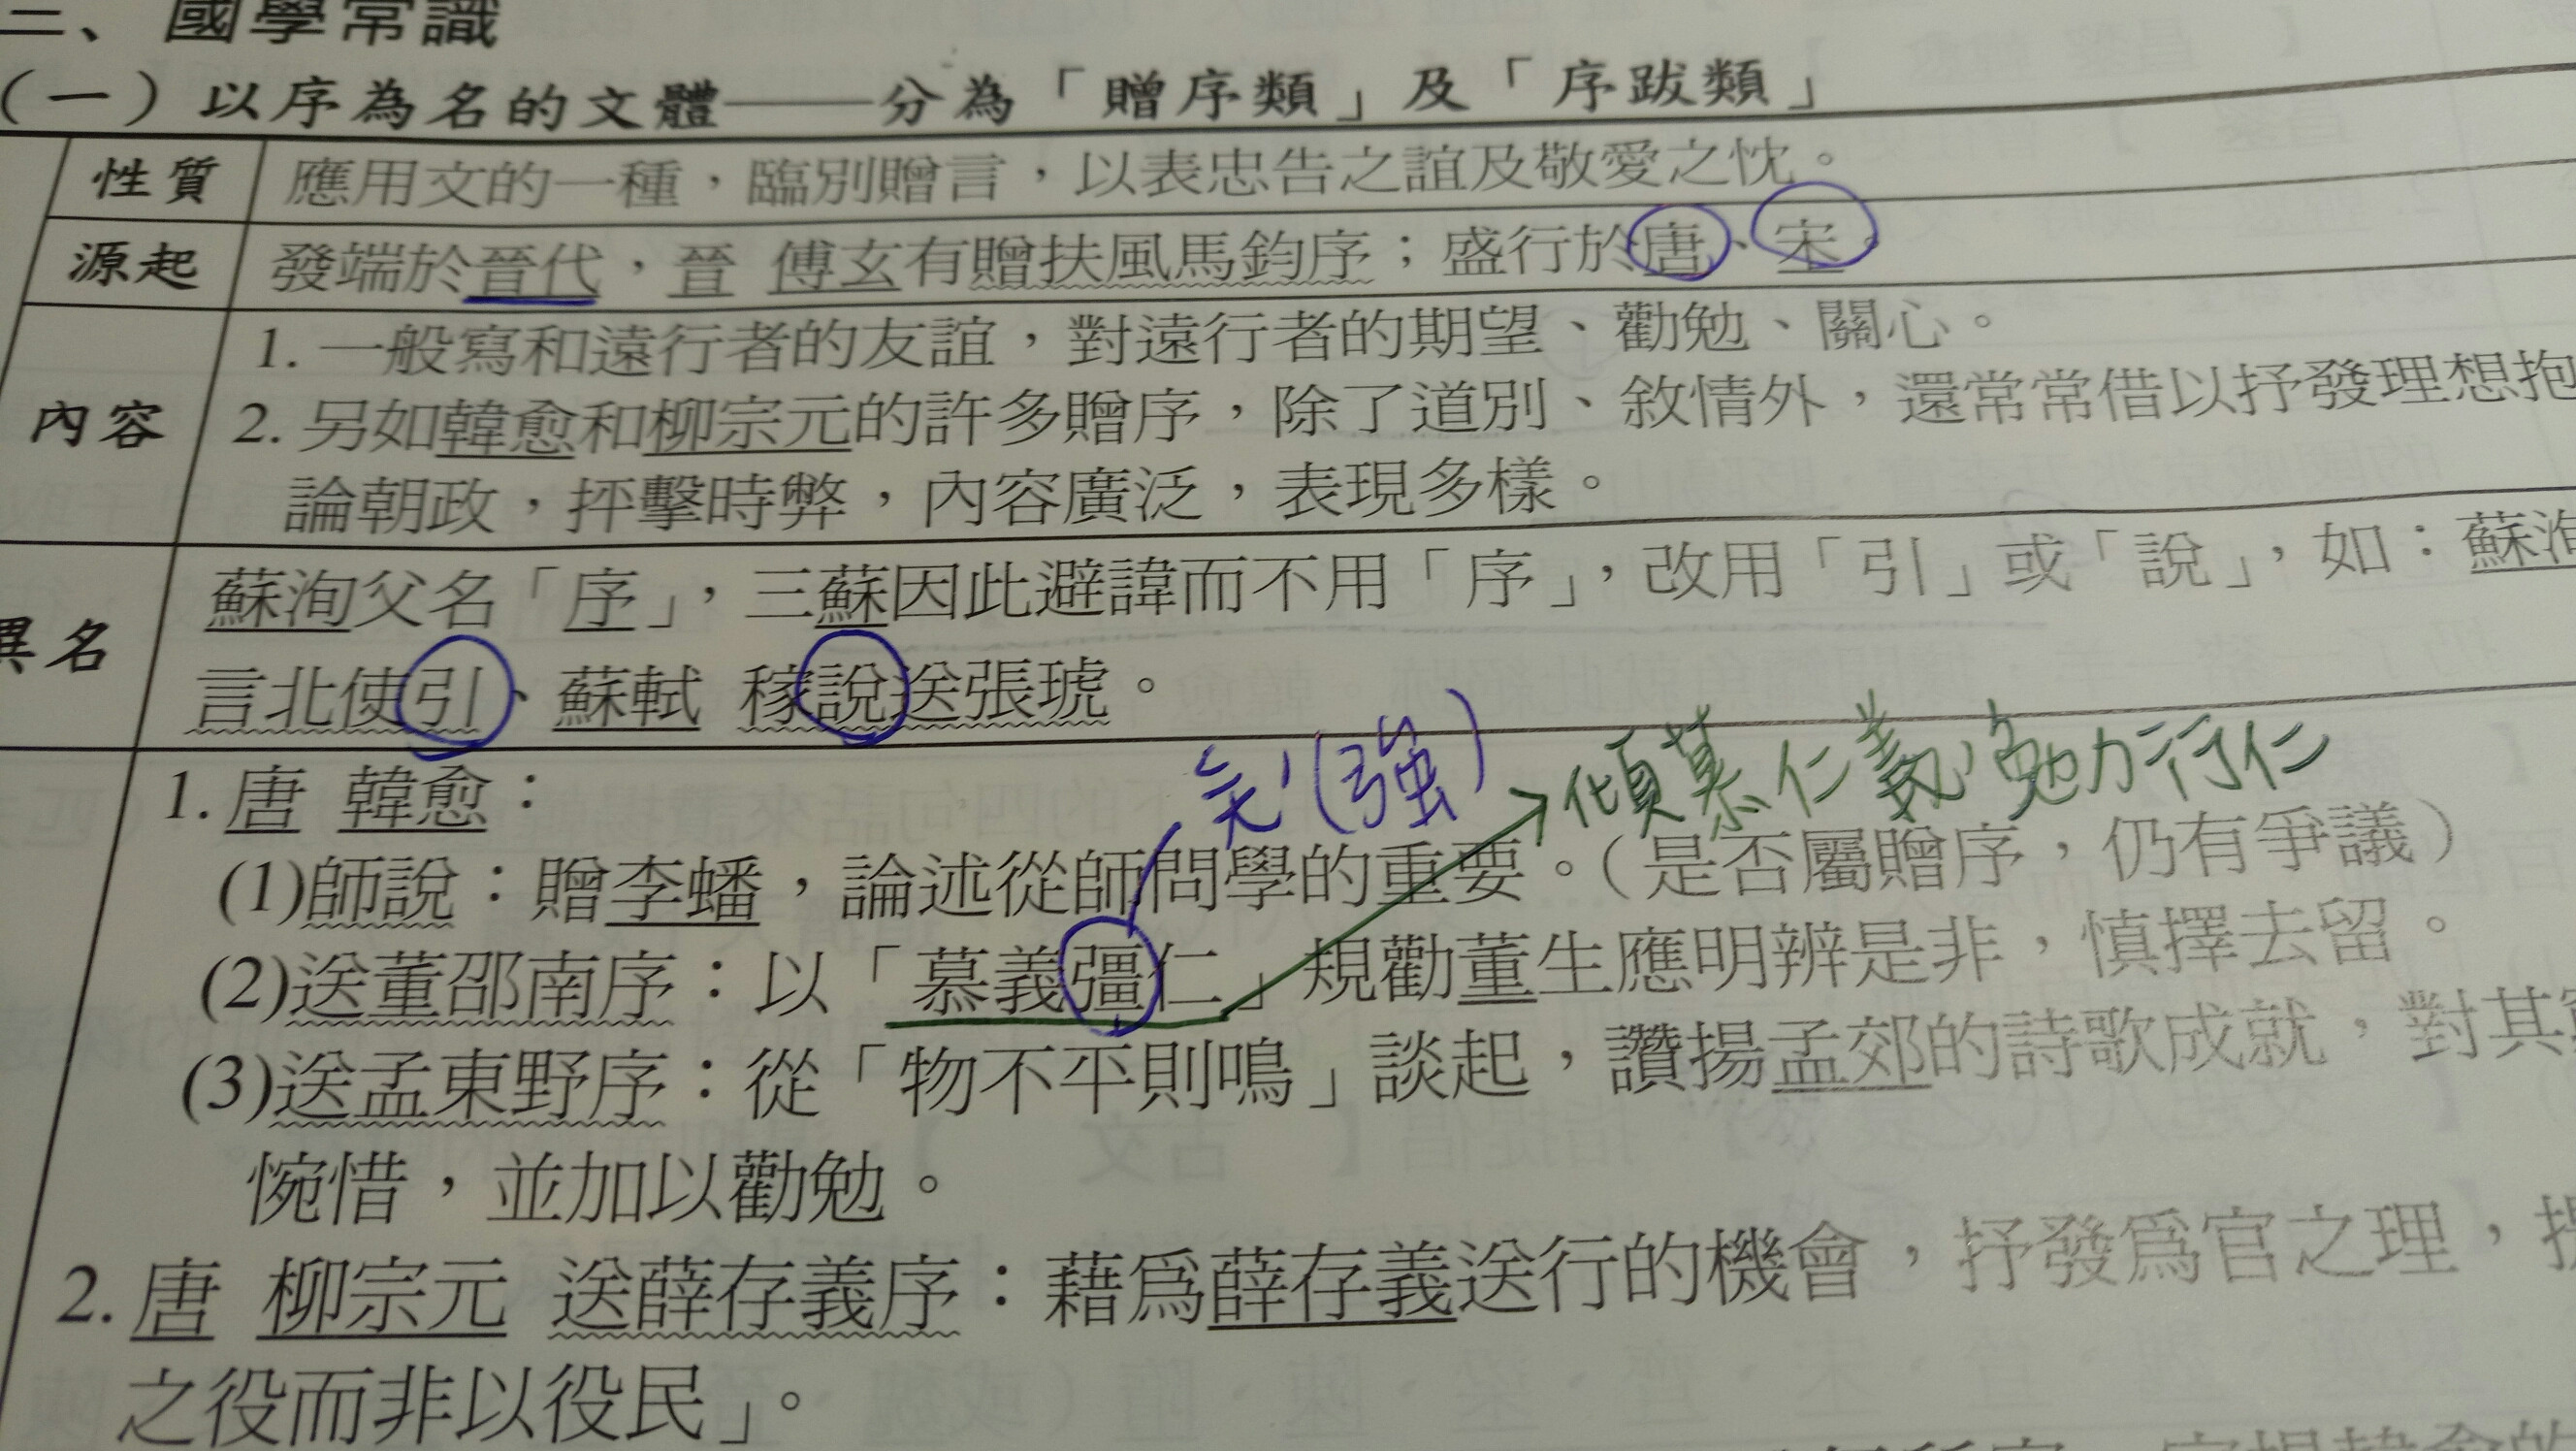 二、國學常識
（一）以序為名的文體——分為「贈序類」及「序跋類」
性質 應用文的一種，臨別贈言，以表忠告之誼及敬愛之忱。
源起 發端於晉代，晉 傅玄有贈扶風馬鈞序；盛行於唐、宋。
內容 1. 一般寫和遠行者的友誼，對遠行者的期望、勸勉、關心。
2. 另如韓愈和柳宗元的許多贈序，除了道別、敘情外，還常常借以抒發理想抱
論朝政，抨擊時弊，內容廣泛，表現多樣。
異名 蘇洵父名「序」，三蘇因此避諱而不用「序」，改用「引」或「說」，如：蘇洵
言北使引、蘇軾 稼說送張琥。
(強)
傾慕仁義，勉力行仁
1. 唐 韓愈：
(1)師說：贈李蟠，論述從師問學的重要。（是否屬贈序，仍有爭議）
(2)送董邵南序：以「慕義彊仁」規勸董生應明辨是非，慎擇去留。
(3)送孟東野序：從「物不平則鳴」談起，讚揚孟郊的詩歌成就，對其
惋惜，並加以勸勉。
2. 唐 柳宗元 送薛存義序：藉為薛存義送行的機會，抒發為官之理，
之役而非以役民」。